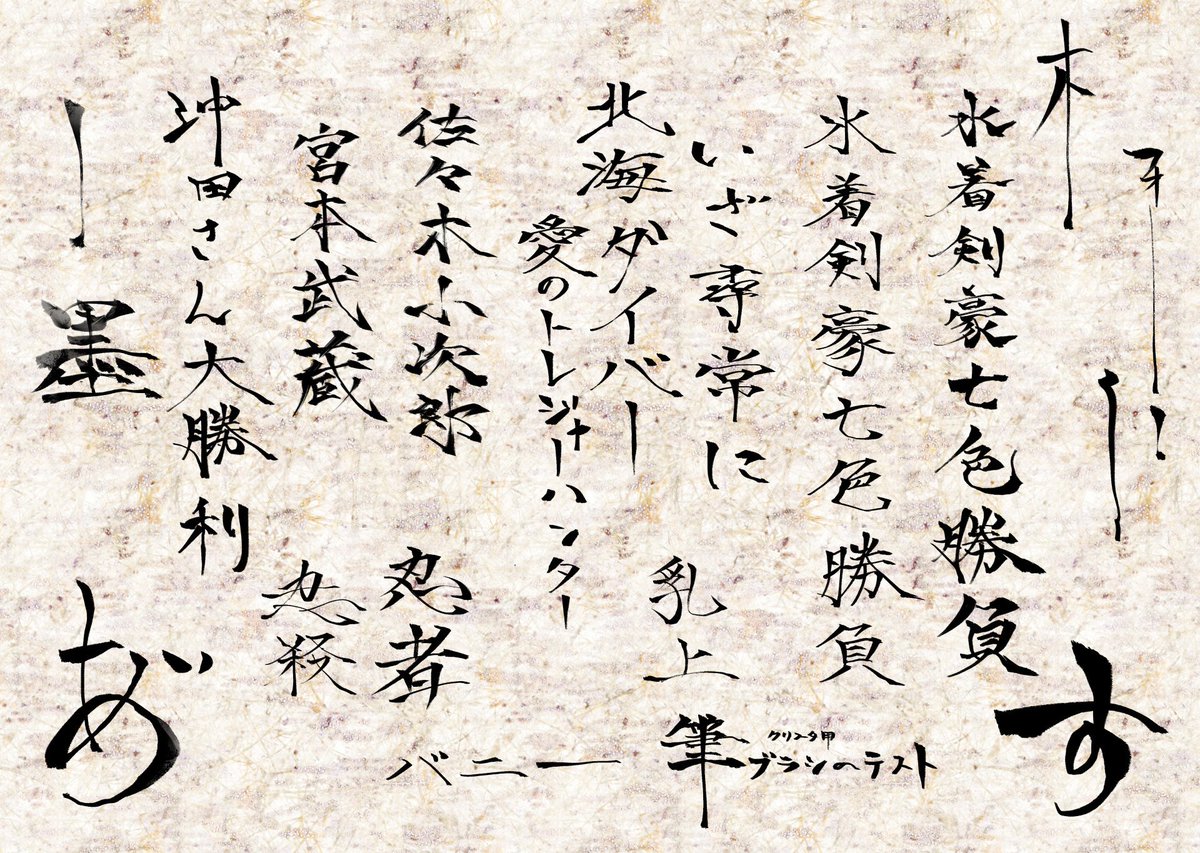 木
水着剣豪七色勝負
す
水着剣豪七色勝負
いざ尋常に
乳上
筆
クリスタ用
ブラシのテスト
北海ダイバー
愛のトレジャーハンター
佐々木小次郎
忍者
宮本武蔵
忍殺
バニー
沖田さん大勝利
墨
あ